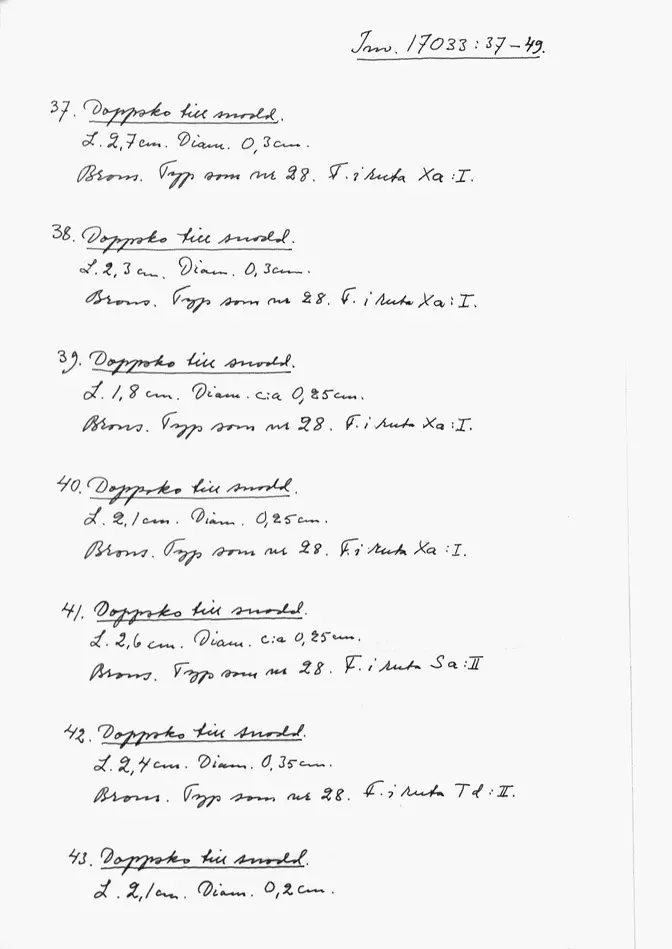 Inv. 17033:37-49.
37. Doppsko till snodd.
L. 2,7 cm. Diam. 0,3 cm.
Brons. Typ som nr 28. F. i ruta Xa:I.
38. Doppsko till snodd.
L. 2,3 cm. Diam. 0,3 cm.
Brons. Typ som nr 28. F. i ruta Xa:I.
39. Doppsko till snodd.
L. 1,8 cm. Diam. c:a 0,25 cm.
Brons. Typ som nr 28. F. i ruta Xa:I.
40. Doppsko till snodd.
L. 2,1 cm. Diam. 0,25 cm.
Brons. Typ som nr 28. F. i ruta Xa:I.
41. Doppsko till snodd.
L. 2,6 cm. Diam. c:a 0,25 cm.
Brons. Typ som nr 28. F. i ruta Sa:II
42. Doppsko till snodd.
L. 2,4 cm. Diam. 0,35 cm.
Brons. Typ som nr 28. F. i ruta Td:II.
43. Doppsko till snodd.
L. 2,1 cm. Diam. 0,2 cm.